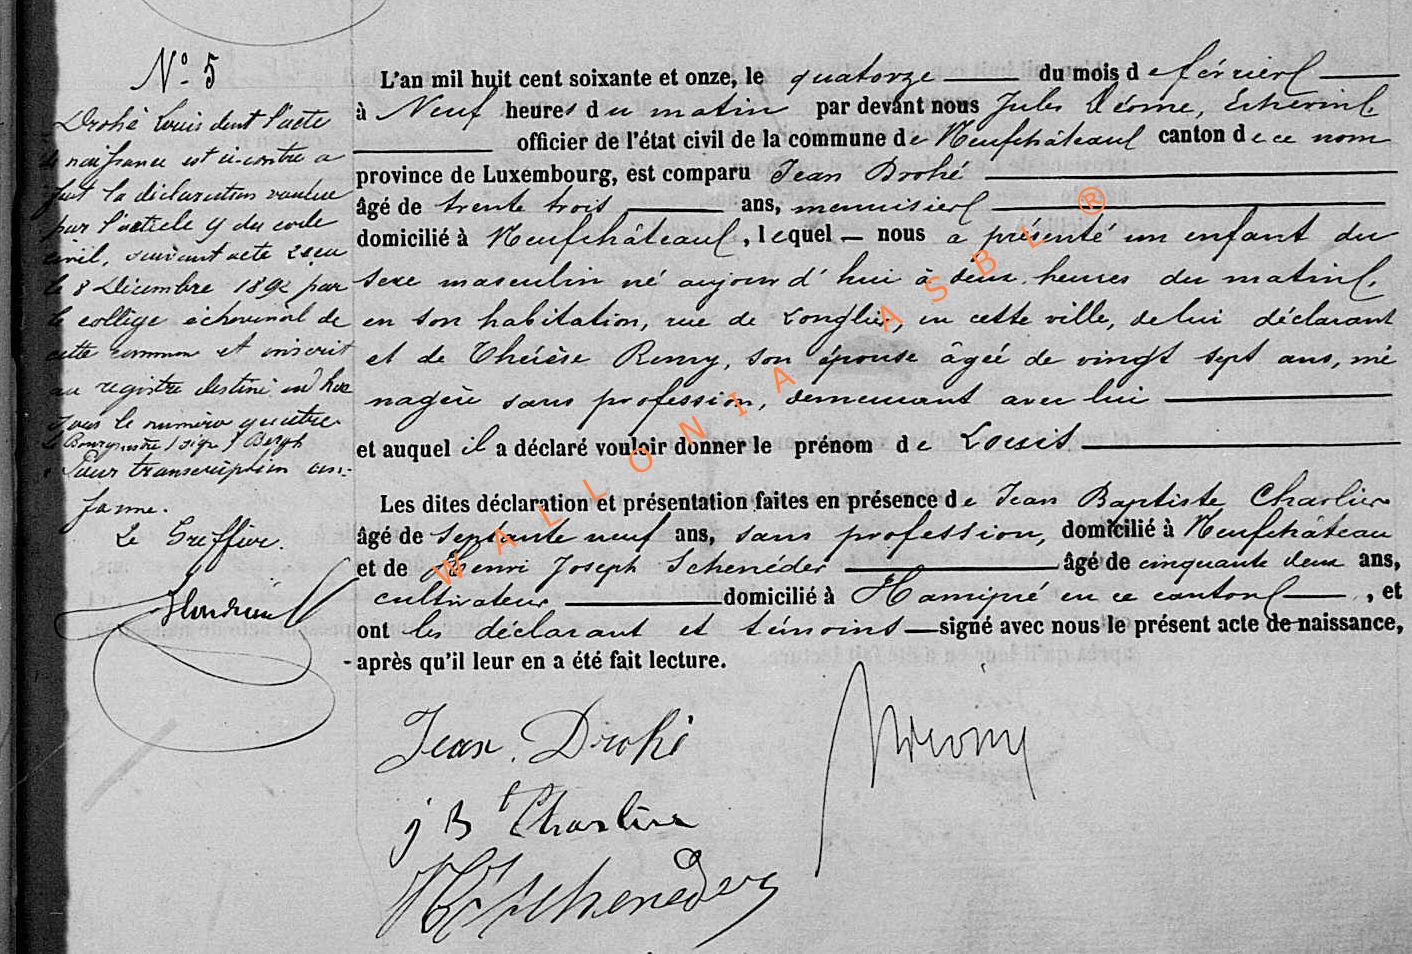 No. 5
Drohé Louis dont l'acte
de naissance est ci-contre a
fait la déclaration voulue
par l'article 9 du code
civil, suivant acte reçu
le 8 Décembre 1892 par
le collège échevinal de
cette commune et inscrit
au registre destiné ad hoc
sous le numéro quatre
Le Bourgmestre (signé)
Pour transcription con-
forme.
Le Greffier.
L'an mil huit cent soixante et onze, le quatorze du mois de février
à Neuf heures du matin par devant nous Jules Déome, Echevin
officier de l'état civil de la commune de Neufchâteau canton de ce nom
province de Luxembourg, est comparu Jean Drohé
âgé de trente trois ans, menuisier
domicilié à Neufchâteau, lequel nous a présenté un enfant du
sexe masculin né aujourd'hui à deux heures du matin,
en son habitation, rue de Longlier, en cette ville, de lui déclarant
et de Thérèse Remy, son épouse âgée de vingt sept ans, mé
nagère sans profession, demeurant avec lui
et auquel il a déclaré vouloir donner le prénom de Louis
Les dites déclaration et présentation faites en présence de Jean Baptiste Charlier
âgé de septante neuf ans, sans profession, domicilié à Neufchâteau
et de Henri Joseph Schenéders âgé de cinquante deux ans,
cultivateur domicilié à Hamipré en ce canton, et
ont les déclarant et témoins signé avec nous le présent acte de naissance,
-après qu'il leur en a été fait lecture.
Jean Drohé
j Bt Charlier
WALLONIA ASBL ®